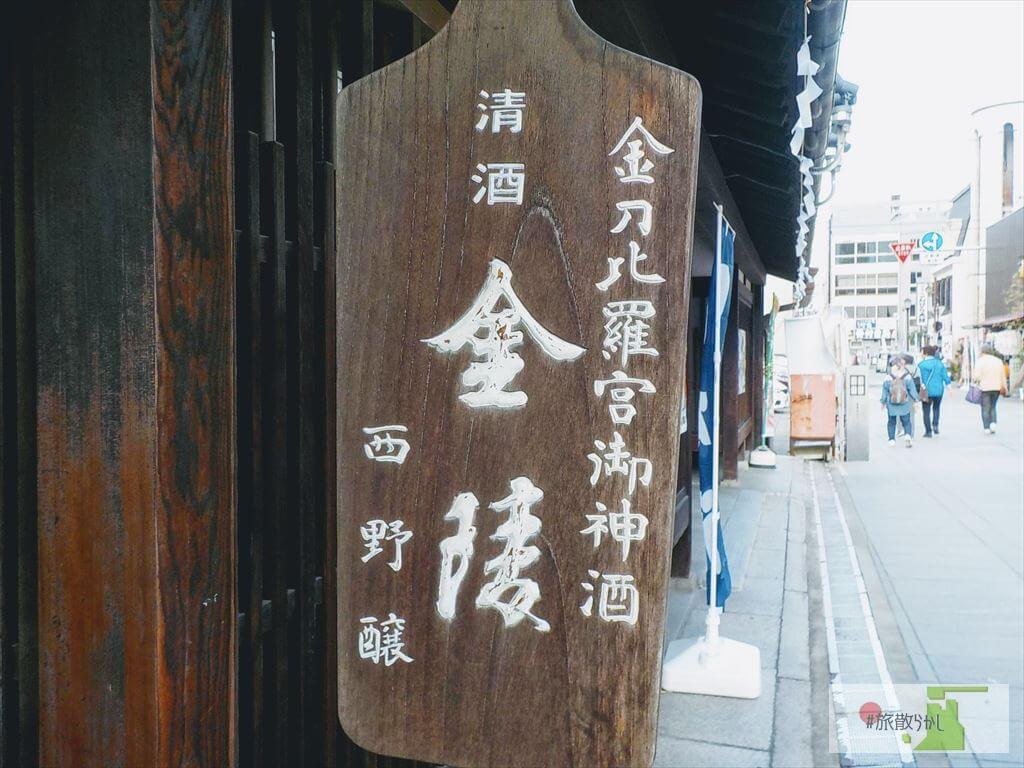 金刀比羅宮御神酒
清酒
金陵
西野醸
#旅散らかし